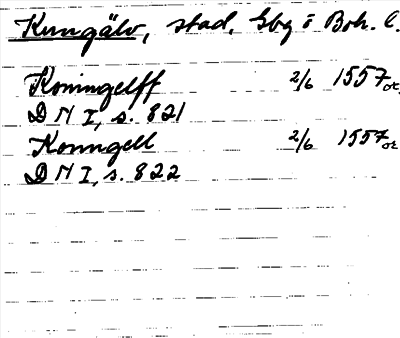 Kungälv, stad, Gbg o Boh. l.
Koningelff 2/6 1557 or.
D N I, s. 821
Konngell 2/6 1557 or
D N I, s. 822